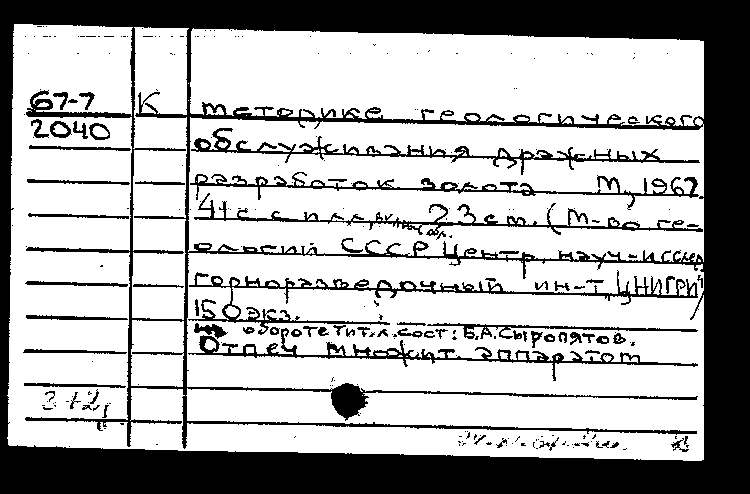 67-7 К методике геологического
2040 обслуживания дражных
разработок золота М., 1967.
41 с. с илл., включ. обл. 23 см. (М-во ге-
ологии СССР. Центр. науч-исслед
горноразведочный ин-т "ЦНИГРИ")
150 экз.
На обороте тит. л. сост: Б.А. Сыропятов.
Отпеч множит. аппаратом
3+2